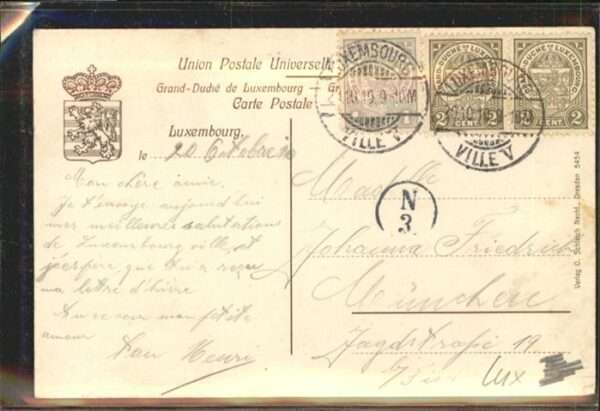 Union Postale Universelle
Grand-Duché de Luxembourg
Carte Postale
Luxembourg,
le 20 Octobre
Mon chère amie.
Je t'envoye aujourd'hui
mes meilleures salutations
de Luxembourg ville, et
j'espère que tu a reçu
ma lettre d'hier
Au revoir mon petite
amour
Ton Henri
LUXEMBOURG
VILLE V
LUXEMBOURG
VILLE V
2 CENT. 2
N
3
Johanna Friedrich
München
Jagdstraße 19
Lux
Verlag C. Schleich Nachf., Dresden 5454